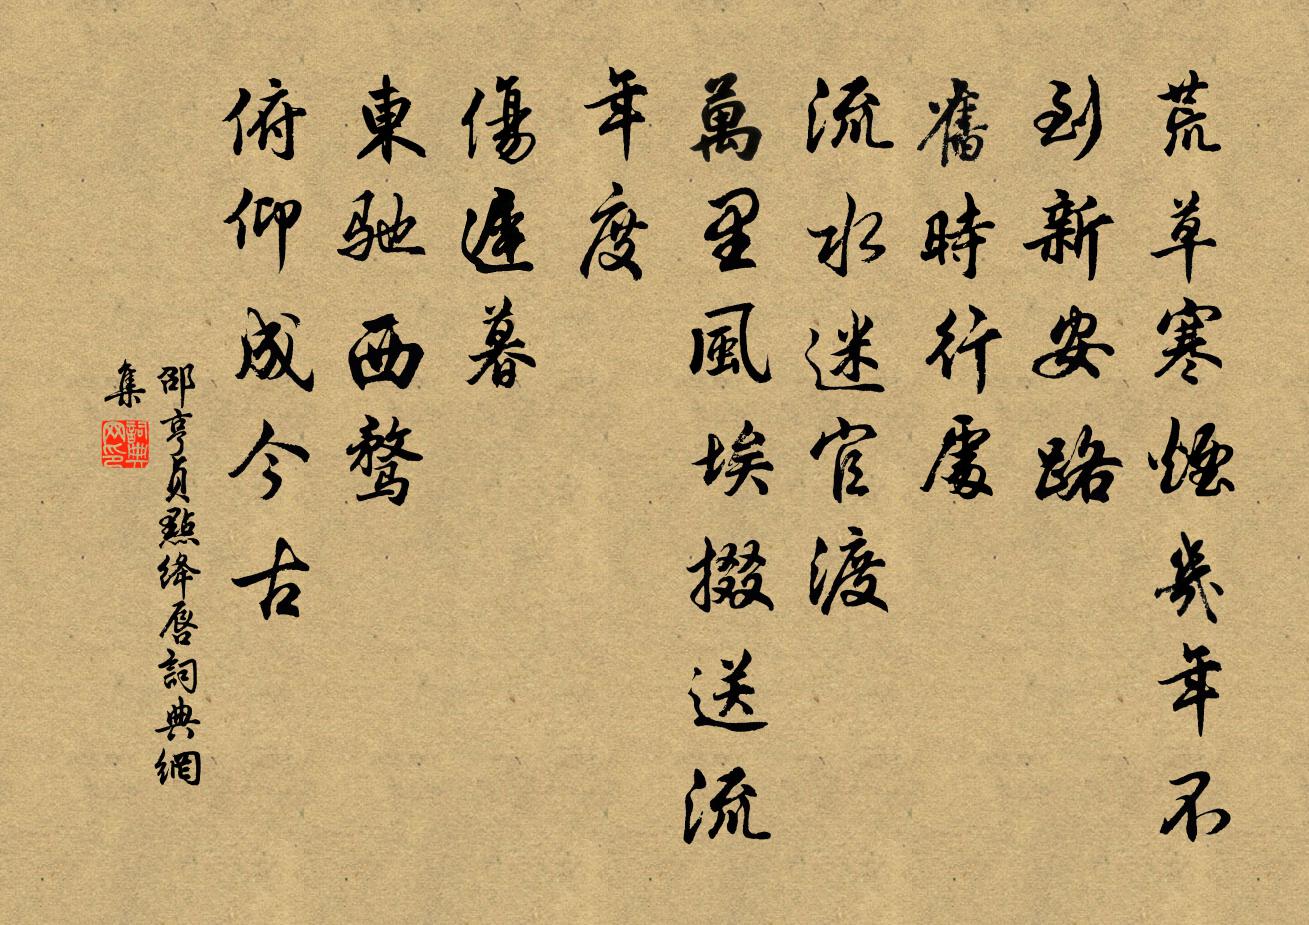 荒草寒煙幾年不
到新安路
舊時行處
流水迷官渡
萬里風埃掇送流
年度
傷遲暮
東馳西騖
俯仰成今古
邵亨貞點絳唇詞典網
集
詞典
网印